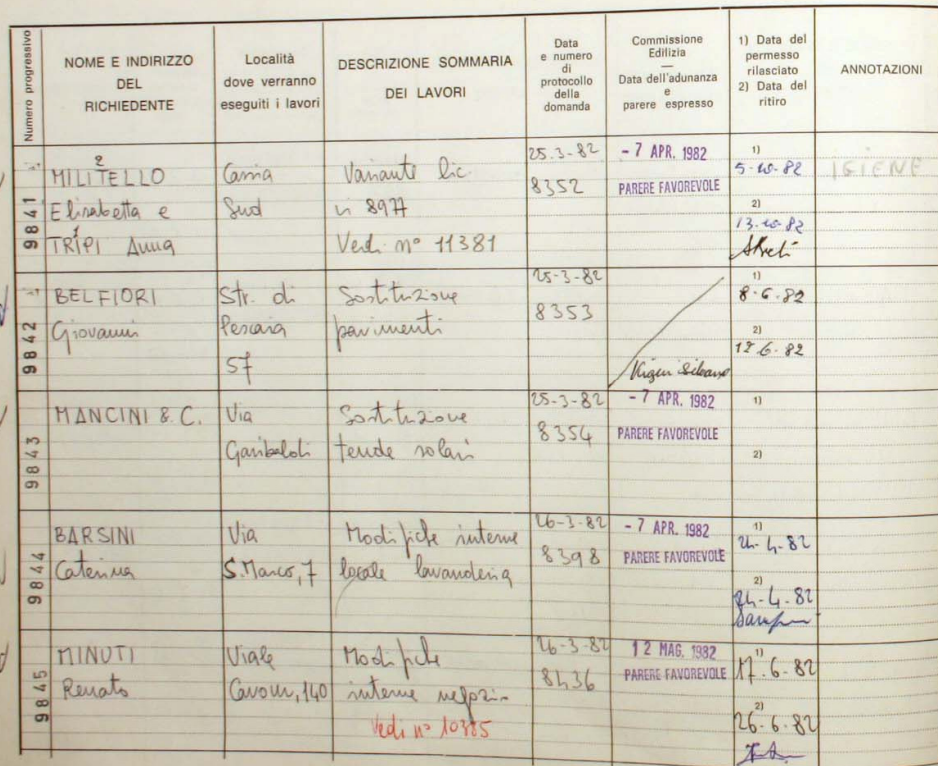 Numero progressivo
NOME E INDIRIZZO
DEL
RICHIEDENTE
Località
dove verranno
eseguiti i lavori
DESCRIZIONE SOMMARIA
DEI LAVORI
Data
e numero
di
protocollo
della
domanda
Commissione
Edilizia
—
Data dell'adunanza
e
parere espresso
1) Data del
permesso
rilasciato
2) Data del
ritiro
ANNOTAZIONI
9841
2
MILITELLO
Elisabetta e
1
TRIPI Anna
Cassia
Sud
Variante lic.
n 8977
Vedi n° 11381
25.3-82
8352
- 7 APR. 1982
PARERE FAVOREVOLE
1)
5-10-82
2)
13-10-82
IGIENE
9842
BELFIORI
Giovanni
Str. di
Pescaia
57
Sostituzione
pavimenti
25-3-82
8353
1)
8-6-82
2)
12.6-82
9843
MANCINI & C.
Via
Garibaldi
Sostituzione
tende solari
25-3-82
8354
- 7 APR. 1982
PARERE FAVOREVOLE
1)
2)
9844
BARSINI
Caterina
Via
S. Marco, 7
Modifiche interne
locale lavanderia
26-3-82
8398
- 7 APR. 1982
PARERE FAVOREVOLE
1)
24-4-82
2)
24-4-82
9845
MINUTI
Renato
Viale
Cavour, 140
Modifiche
interne negozio
Vedi n° 10385
26-3-82
8436
12 MAG. 1982
PARERE FAVOREVOLE
1)
17.6-82
2)
26-6-82